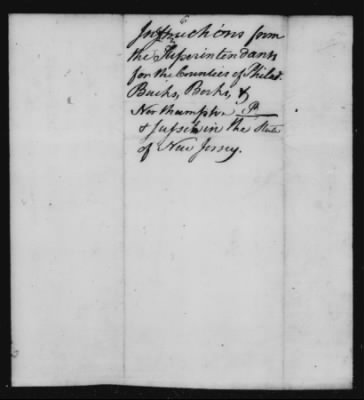 Instructions from
the Superintendants
for the Counties of Philad.
Bucks, Berks, &
Northampton P.
& Sussex in the State
of New Jersey.